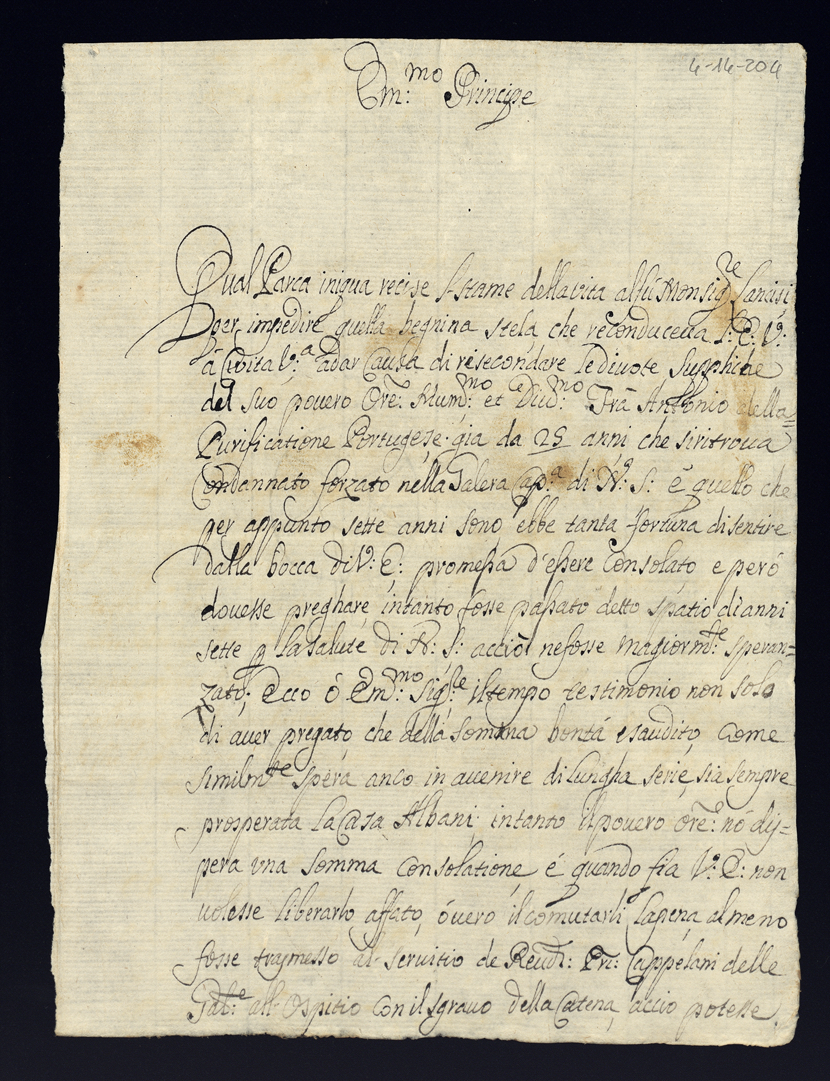 4-14-204
Em:mo Principe
Qual Parca iniqua recise Astame della vita al fù Monsig:re Lancisi
per impedire quella begnina stela che reconduceua l: E: V:
à Ciuita V:a adar Causa di resecondare le diuote Supphche
del suo pouero Ore: Hum:mo et Diud:mo Frà Antonio della
Purificatione Portugese gia da 25 anni che siritroua
Condannato forzato nella Galera Cap:a di N: S: è quello che
per appunto sette anni sono ebbe tanta fortuna disentire
dalla bocca di V: E: promessa d'essere Consolato, e però
douesse preghare, intanto fosse passato detto spatio di anni
sette p la salute di N: S: acciò nefosse magiorm:te speran=
zati; Ecco ò Em:mo Sig:re il tempo testimonio non solo
di auer pregato, che della somma bontá esaudito, Come
similm:te spera anco in auuenire di lungha serie, sia sempre
prosperata la Casa Albani, intanto il pouero Ore: nó dis=
pera vna somma Consolatione, é quando sia V: E: non
uolesse liberarlo affato, óuero il comutarli la pena, almeno
fosse trasmesso al seruitio de Reudi: Pri: Cappelani delle
Gal:e all'Ospitio con il sgrauo della Catena, acció potesse